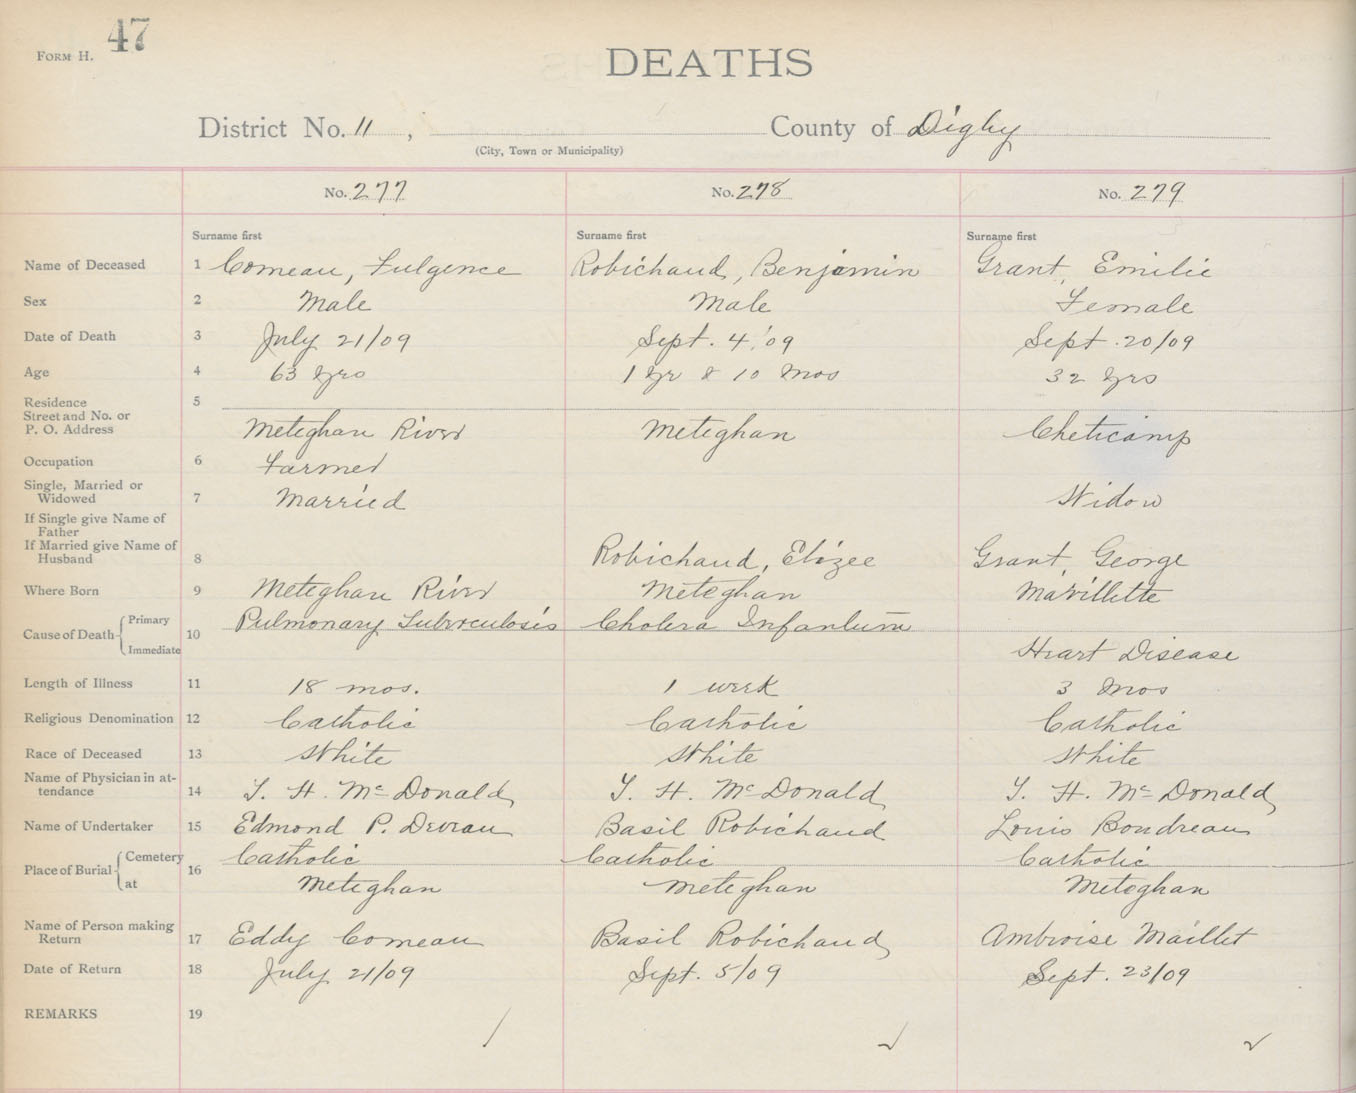 FORM H. 47
DEATHS
District No. 11 , County of Digby
(City, Town or Municipality)
No. 277 No. 278 No. 279
Surname first Surname first Surname first
Name of Deceased 1 Comeau, Fulgence Robichaud, Benjamin Grant, Emilie
Sex 2 Male Male Female
Date of Death 3 July 21/09 Sept. 4, '09 Sept. 20/09
Age 4 63 yrs 1 yr & 10 mos 32 yrs
Residence 5
Street and No. or
P. O. Address Meteghan River Meteghan Cheticamp
Occupation 6 Farmer
Single, Married or
Widowed 7 Married Widow
If Single give Name of
Father
If Married give Name of
Husband 8 Robichaud, Elizee Grant, George
Where Born 9 Meteghan River Meteghan Mavillette
Cause of Death Primary 10 Pulmonary Tuberculosis Cholera Infantum
Immediate Heart Disease
Length of Illness 11 18 mos. 1 week 3 mos
Religious Denomination 12 Catholic Catholic Catholic
Race of Deceased 13 White White White
Name of Physician in at-
tendance 14 T. H. McDonald T. H. McDonald T. H. McDonald
Name of Undertaker 15 Edmond P. Deveau Basil Robichaud Louis Boudreau
Place of Burial Cemetery 16 Catholic Catholic Catholic
at Meteghan Meteghan Meteghan
Name of Person making
Return 17 Eddy Comeau Basil Robichaud Ambroise Maillet
Date of Return 18 July 21/09 Sept. 5/09 Sept. 23/09
REMARKS 19